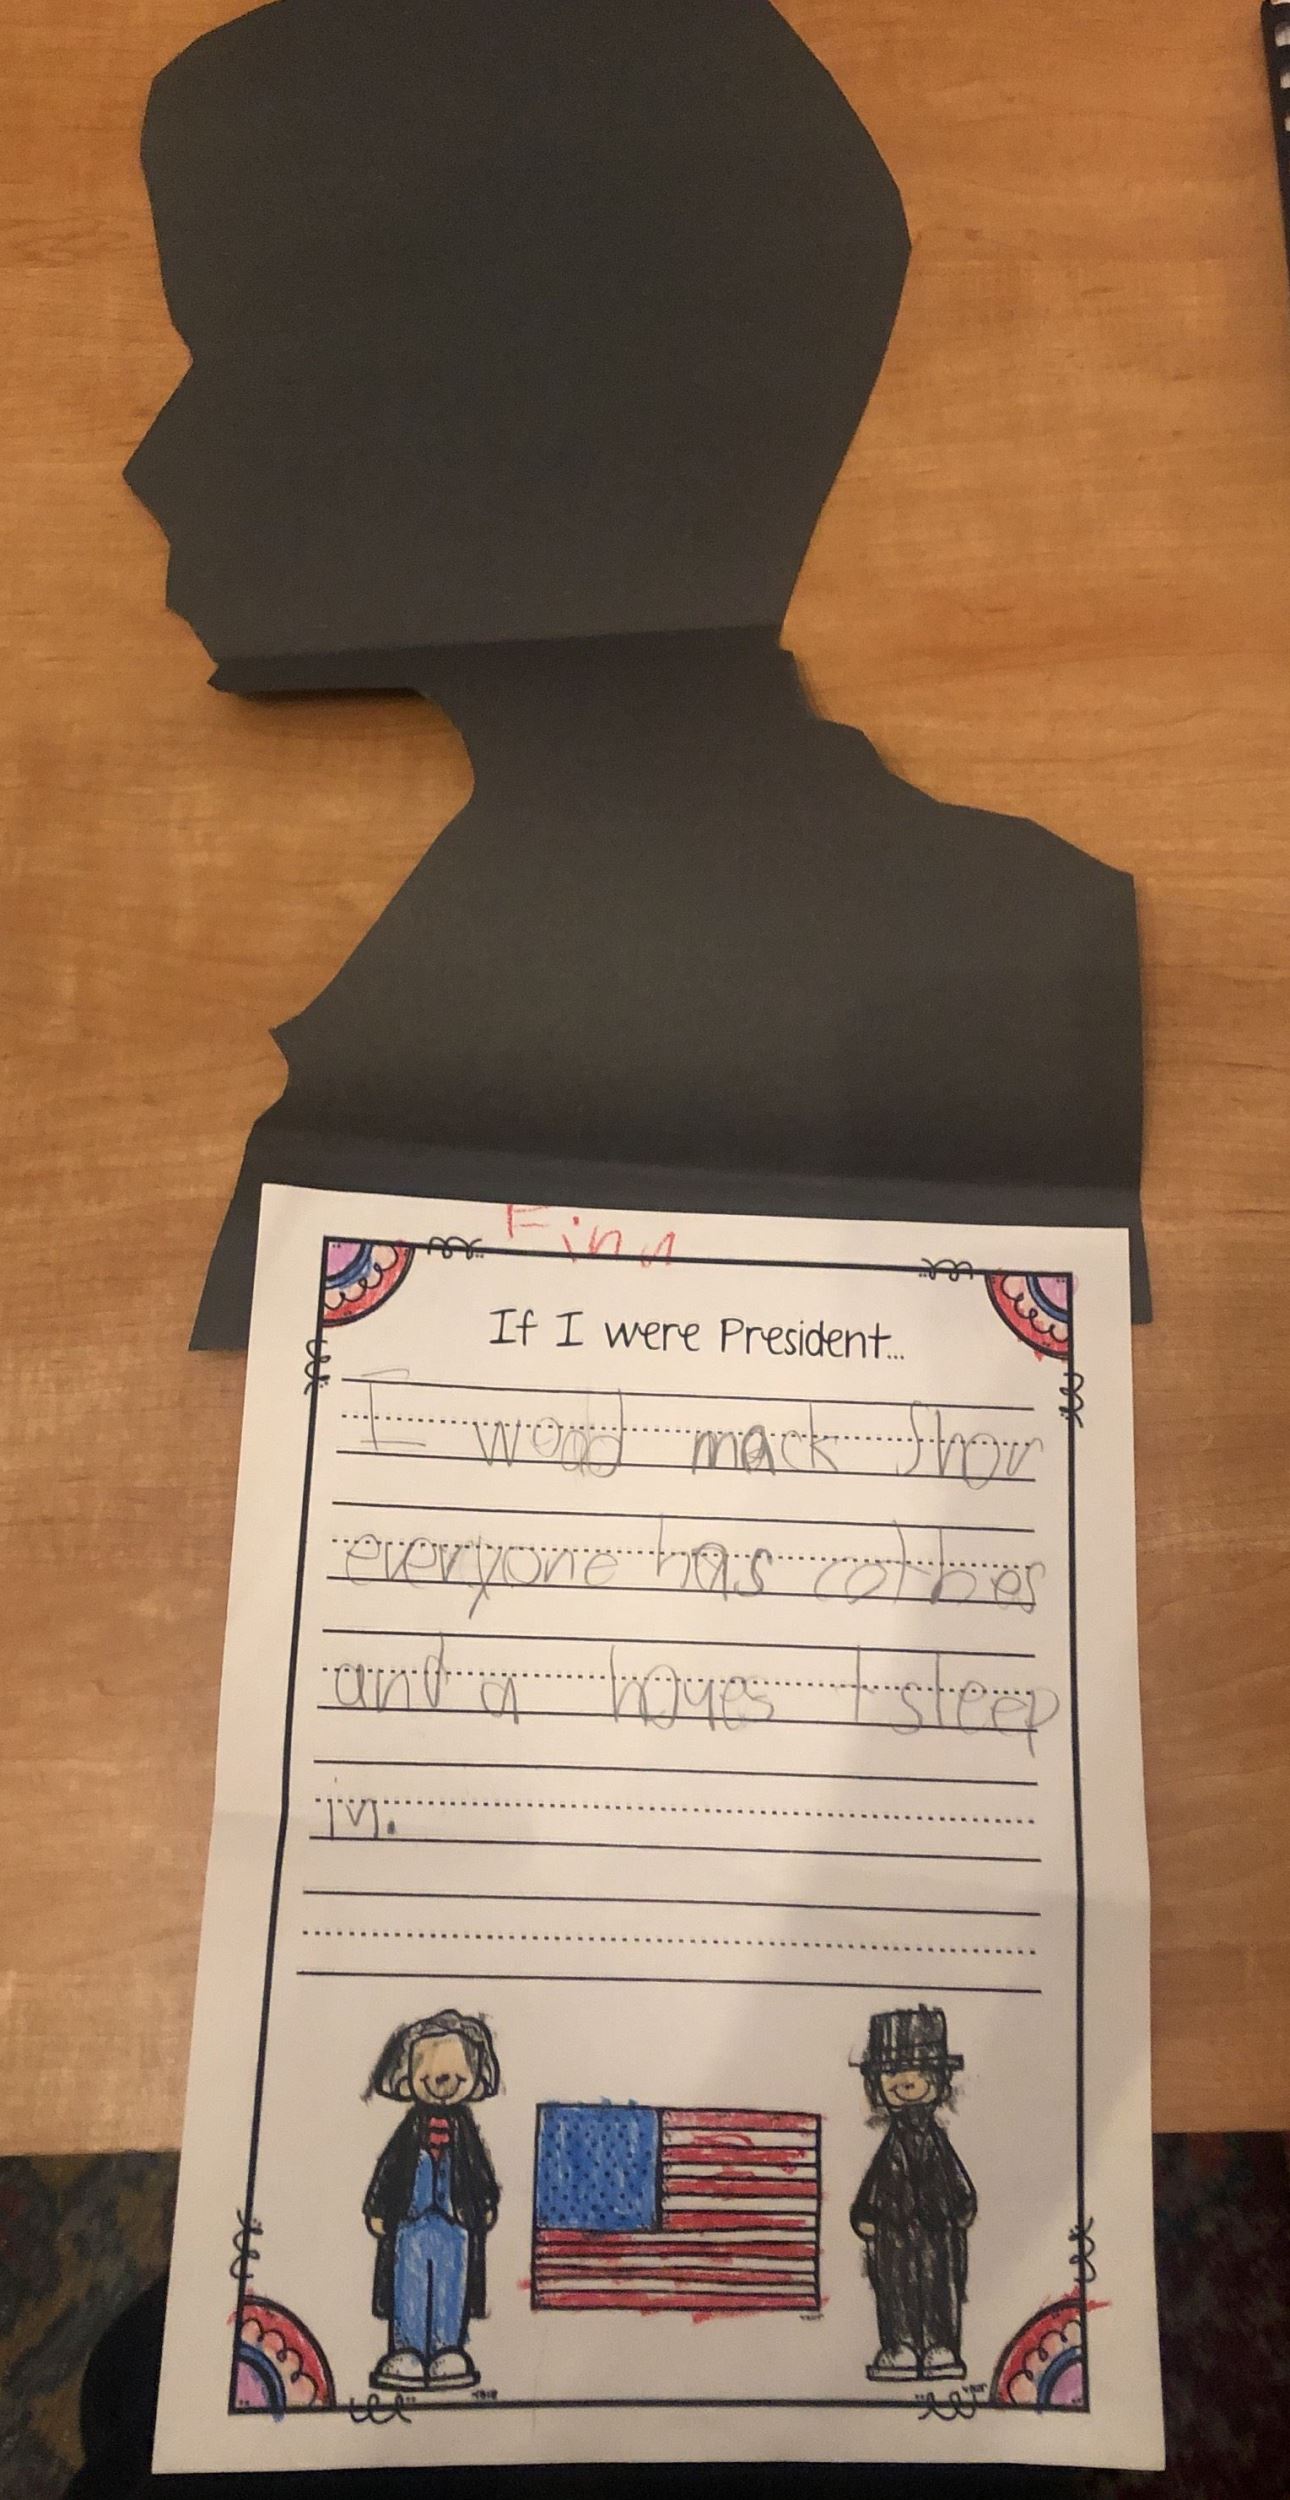 Finn
If I were President...
I woad mack Shor
everyone has cothes
and a hoyes t sleep
in.